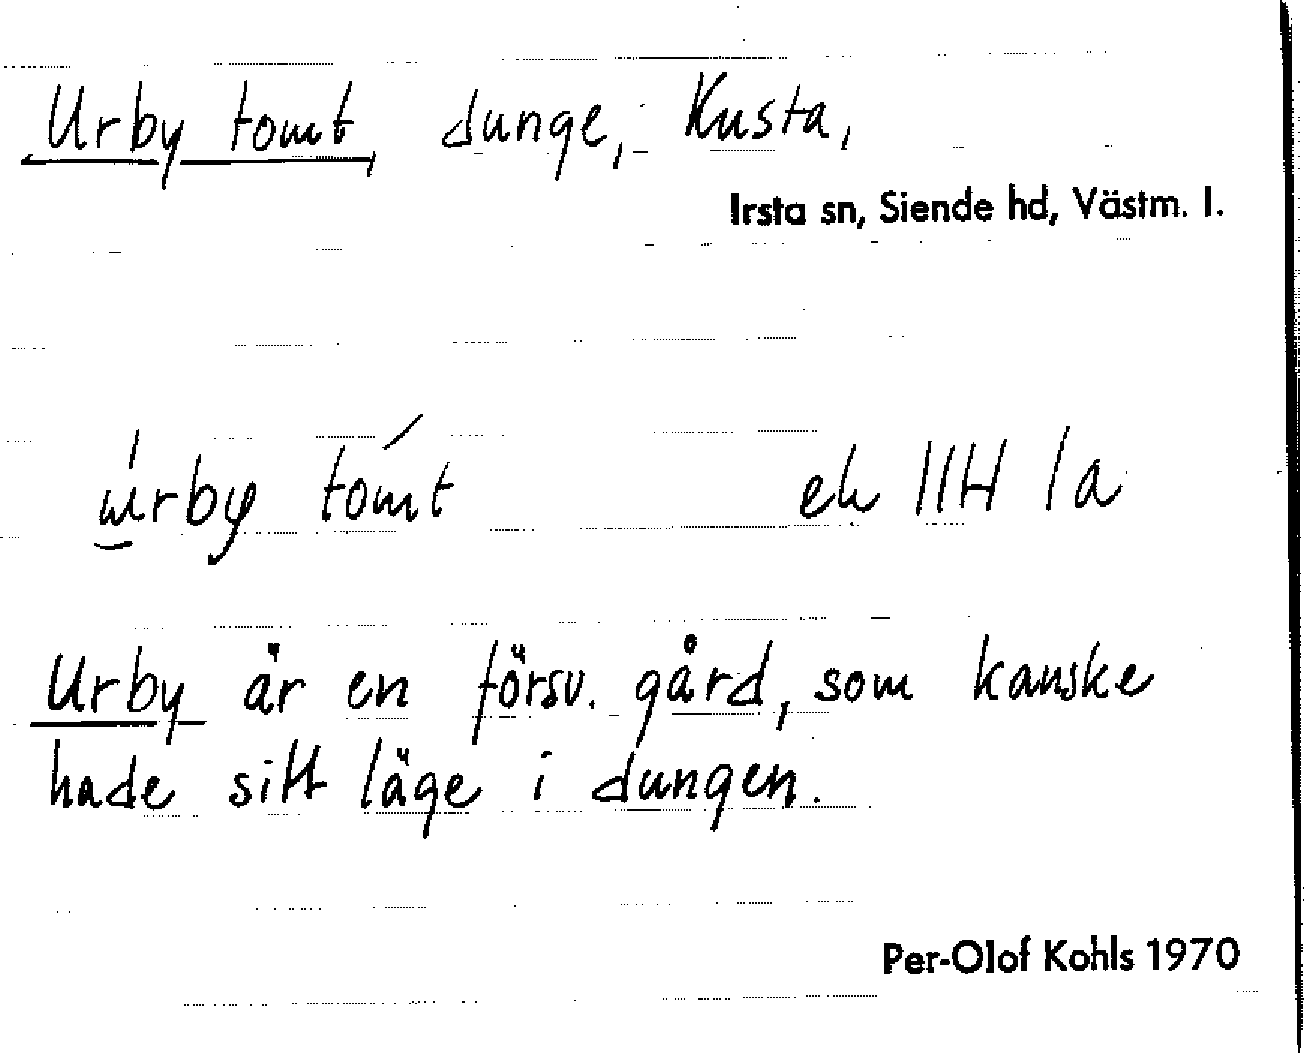 Urby tomt, dunge, Kusta,
Irsta sn, Siende hd, Västm. l.
úrby tómt ek 11H 1a
Urby är en försv. gård, som kanske
hade sitt läge i dungen.
Per-Olof Kohls 1970